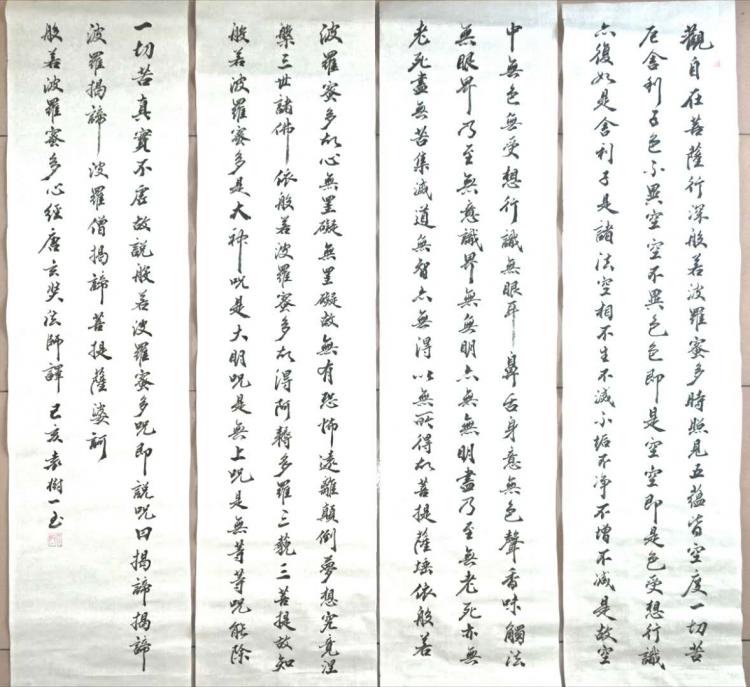 觀自在菩薩行深般若波羅蜜多時照見五蘊皆空度一切苦
厄舍利子色不異空空不異色色即是空空即是色受想行識
亦復如是舍利子是諸法空相不生不滅不垢不净不增不減是故空
中無色無受想行識無眼耳鼻舌身意無色聲香味觸法
無眼界乃至無意識界無無明亦無無明盡乃至無老死亦無
老死盡無苦集滅道無智亦無得以無所得故菩提薩埵依般若
波羅蜜多故心無罣礙無罣礙故無有恐怖遠離顛倒夢想究竟涅
槃三世諸佛依般若波羅蜜多故得阿耨多羅三藐三菩提故知
般若波羅蜜多是大神咒是大明咒是無上咒是無等等咒能除
一切苦真實不虛故說般若波羅蜜多咒即說咒曰揭諦揭諦
波羅揭諦波羅僧揭諦菩提薩婆訶
般若波羅蜜多心經唐玄奘法師譯 己亥袁樹一